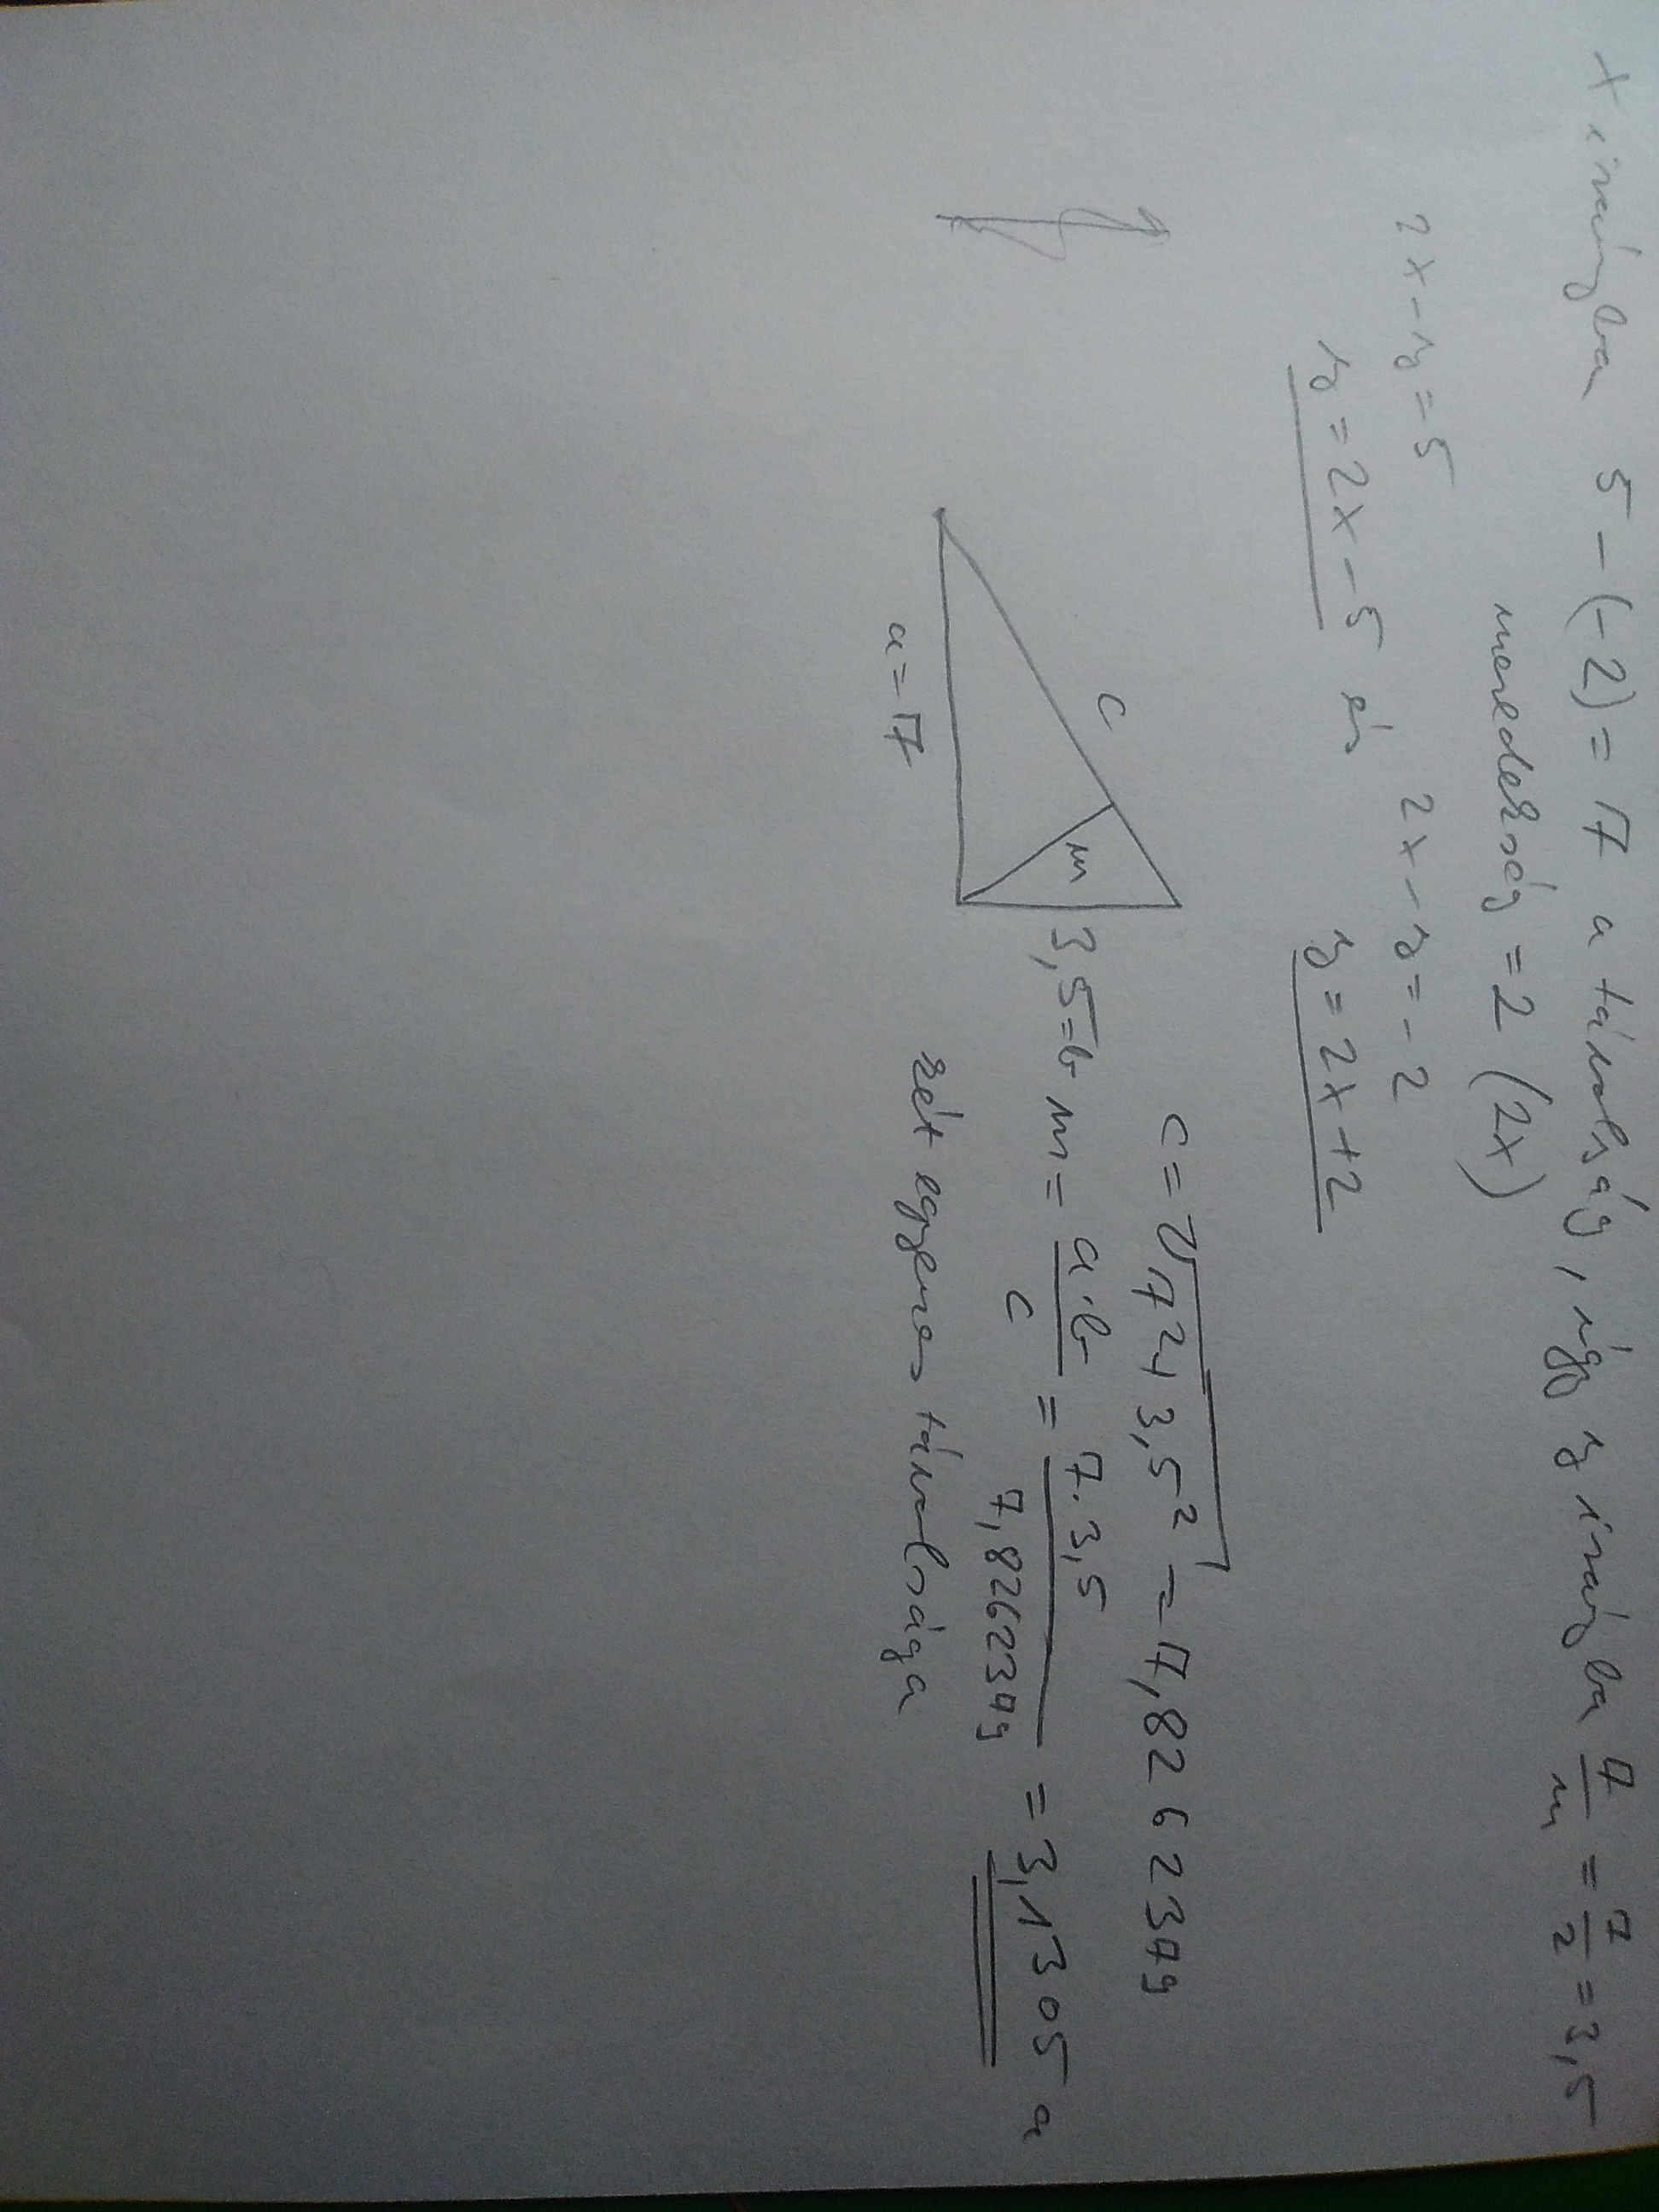 x irányba 5-(-2)=7 a távolság, így y irányba 7/m = 7/2 = 3,5
meredekség = 2 (2x)
2x-y=5 2x-y=-2
y=2x-5 és y=2x+2
c=√7²+3,5² = 7,8262379
c
m 3,5=b m= a·b/c = 7·3,5/7,8262379 = 3,1305 a
a=7 két egyenes távolsága